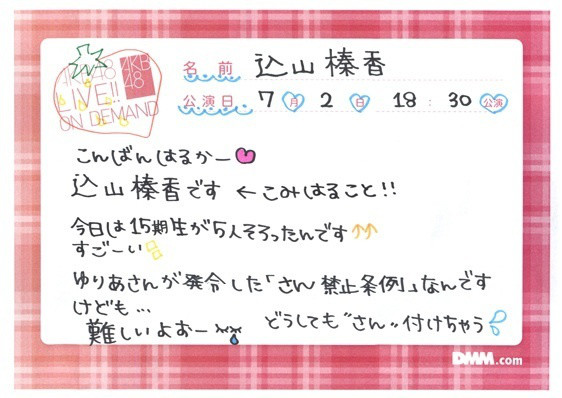 AKB48 AKB48
LIVE!!
ON DEMAND
名前 込山榛香
公演日 7月2日 18:30公演
こんばんはるかー
込山榛香です ←こみはること!!
今日は15期生が5人そろったんです↑↑
すごーい
ゆりあさんが発令した「さん禁止条例」なんです
けども…
難しいよおー
どうしても"さん"付けちゃう
DMM.com